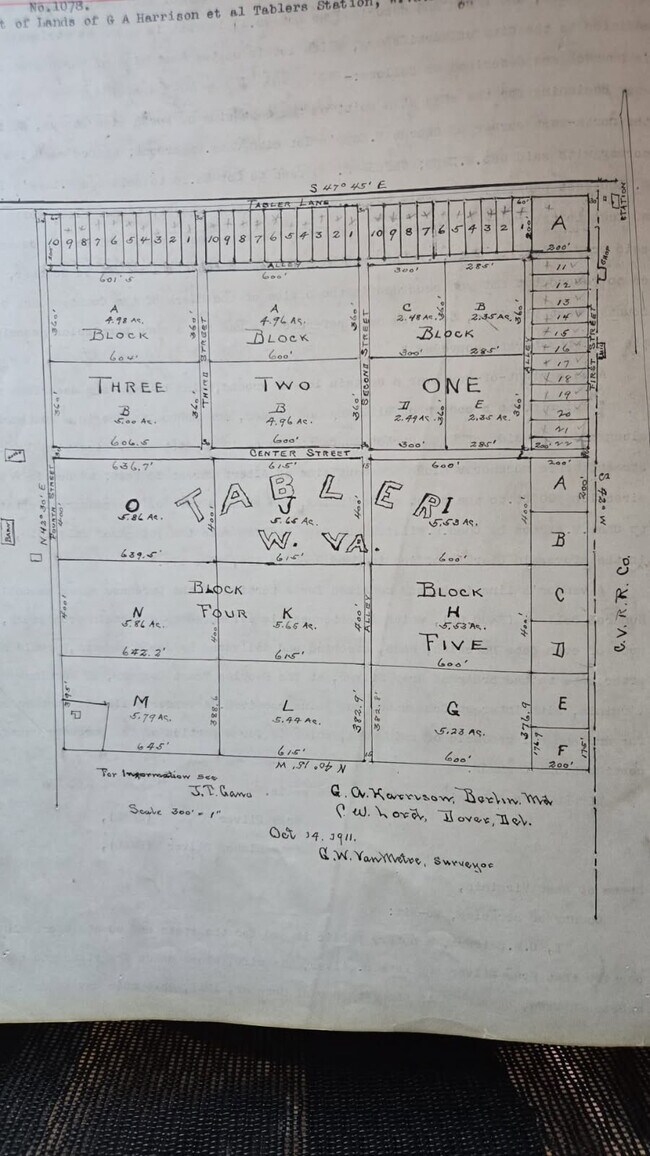 No.1078.
t of Lands of G A Harrison et al Tablers Station,
S 47° 45' E
TABLER LANE
STATION
10 9 8 7 6 5 4 3 2 1
10 9 8 7 6 5 4 3 2 1
10 9 8 7 6 5 4 3 2 1
A
200'
200'
60'
ALLEY
601.5
600'
300'
285'
11
12
13
14
15
16
17
18
19
20
21
22
200'
FIRST STREET
ALLEY
A
4.98 Ac.
BLOCK
360'
360'
604'
A
4.96 Ac.
BLOCK
600'
C
2.48 Ac.
360'
B
2.35 Ac.
BLOCK
300'
285'
THIRD STREET
SECOND STREET
THREE
TWO
ONE
B
5.00 Ac.
360'
360'
606.5
B
4.96 Ac.
360'
600'
D
2.49 Ac.
360'
E
2.35 Ac.
360'
300'
285'
CENTER STREET
FOURTH STREET
N 42° 30' E
BARN
636.7'
615'
600'
200'
TABLER
W. VA.
O
5.86 Ac.
400'
400'
639.5'
J
5.65 Ac.
400'
615'
I
5.53 Ac.
400'
600'
A
200'
B
C
D
E
F
S 42° W
C.V.R.R. Co.
BLOCK
FOUR
N
5.86 Ac.
400'
400'
642.2'
K
5.65 Ac.
400'
615'
ALLEY
BLOCK
H
5.53 Ac.
FIVE
400'
600'
M
5.79 Ac.
395'
388.6
645'
L
5.44 Ac.
382.9'
615'
G
5.23 Ac.
382.8'
376.9
600'
176.9
175'
200'
N 40° 15' W
For Information see
J.T. Gano
G.A. Harrison, Berlin, Md
C.W. Lord, Dover, Del.
Scale 300' = 1"
Oct 14, 1911.
G.W. VanMetre, Surveyor